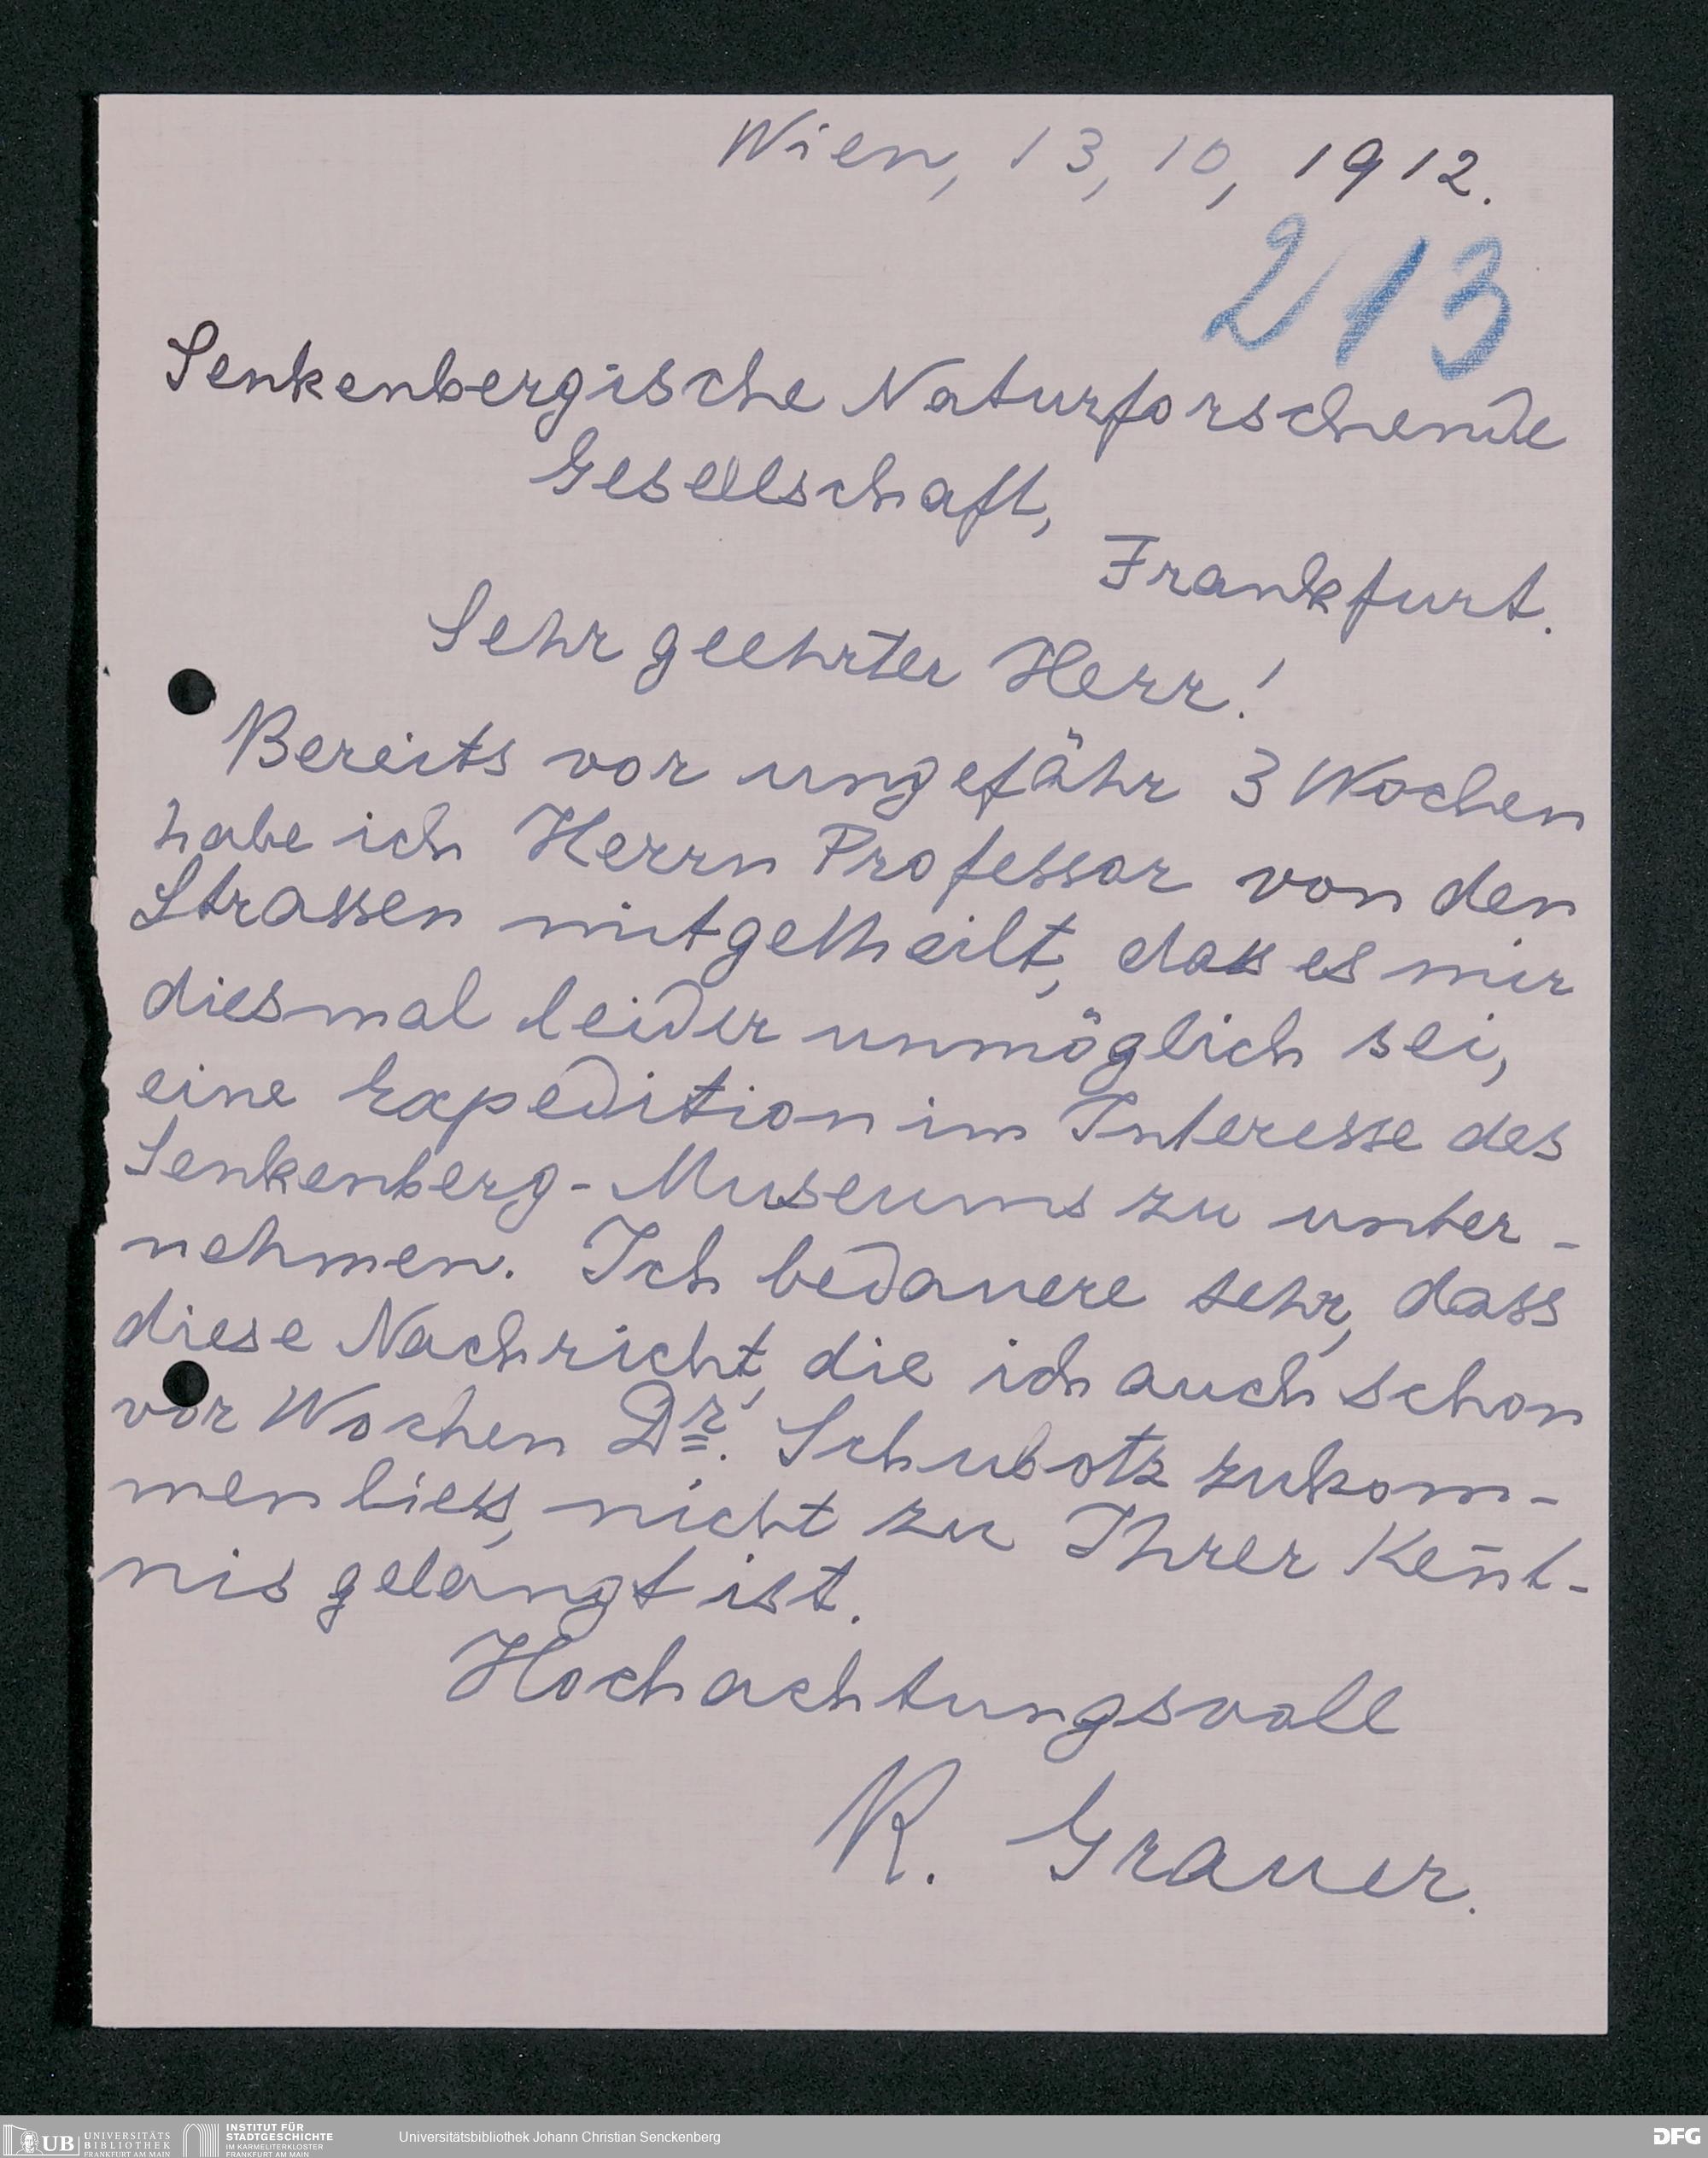 Wien, 13, 10, 1912.
213
Senkenbergische Naturforschende
Gesellschaft,
Frankfurt.
Sehr geehrter Herr!
Bereits vor ungefähr 3 Wochen
habe ich Herrn Professor von den
Strassen mitgetheilt, dass es mir
diesmal leider unmöglich sei,
eine Expedition im Interesse des
Senkenberg-Museums zu unter-
nehmen. Ich bedauere sehr, dass
diese Nachricht, die ich auch schon
vor Wochen Dr. Schubotz zukom-
men liess, nicht zu Ihrer Kent̄-
nis gelangt ist.
Hochachtungsvoll
R. Grauer.
UB UNIVERSITÄTS BIBLIOTHEK FRANKFURT AM MAIN
INSTITUT FÜR STADTGESCHICHTE IM KARMELITERKLOSTER FRANKFURT AM MAIN
Universitätsbibliothek Johann Christian Senckenberg
DFG